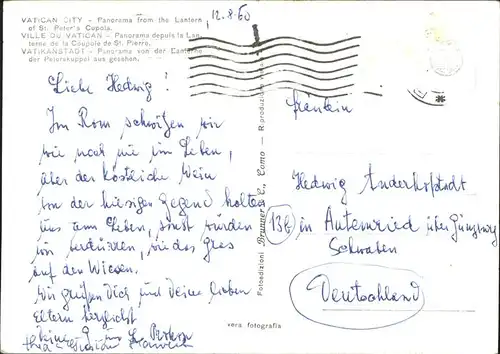 VATICAN CITY - Panorama from the Lantern
of St. Peter's Cupola.
VILLE DU VATICAN - Panorama depuis la Lan-
terne de la Coupole de St. Pierre.
VATIKANSTADT - Panorama von der Lanterne
der Peterskuppel aus gesehen.
12.8.60
Liebe Hedwig!
In Rom schwitzen wir
wie noch nie im Leben,
aber der köstliche Wein
von der hiesigen Gegend halten
uns am Leben, sonst würden
wir verdürren, wie das Gras
auf den Wiesen.
Wir grüßen Dich und Deine lieben
Eltern herzlichst
Fotoedizioni Brunner & C., Como - Riproduzione
vera fotografia
Fräulein
Hedwig Anderhofstadt
13b in Autenried über Günzburg
Schwaben
Deutschland